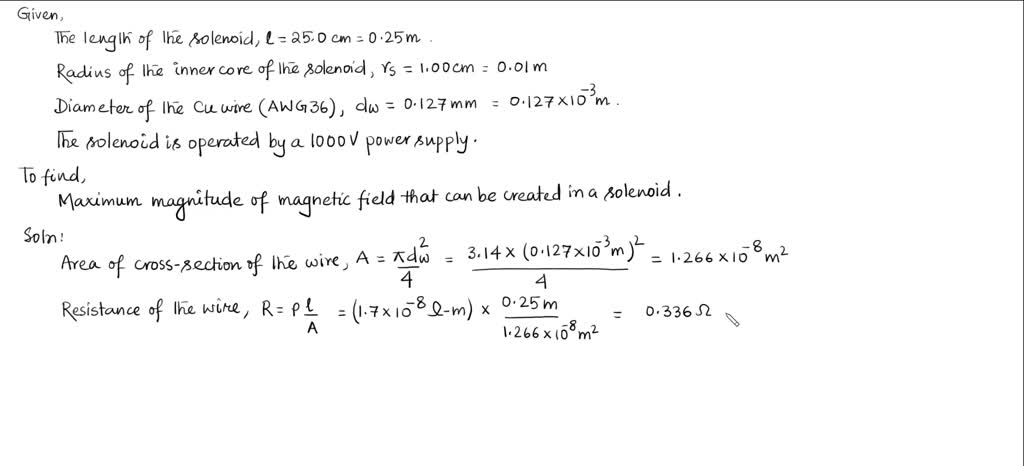 Given,
The length of the solenoid, l = 25.0 cm = 0.25 m.
Radius of the inner core of the solenoid, rs = 1.00 cm = 0.01 m
Diameter of the Cu wire (AWG36), dw = 0.127 mm = 0.127 × 10⁻³ m.
The solenoid is operated by a 1000 V power supply.
To find,
Maximum magnitude of magnetic field that can be created in a solenoid.
Soln:
Area of cross-section of the wire, A = πdw²/4 = 3.14 × (0.127 × 10⁻³ m)²/4 = 1.266 × 10⁻⁸ m²
Resistance of the wire, R = ρ l/A = (1.7 × 10⁻⁸ Ω-m) × 0.25 m/1.266 × 10⁻⁸ m² = 0.336 Ω